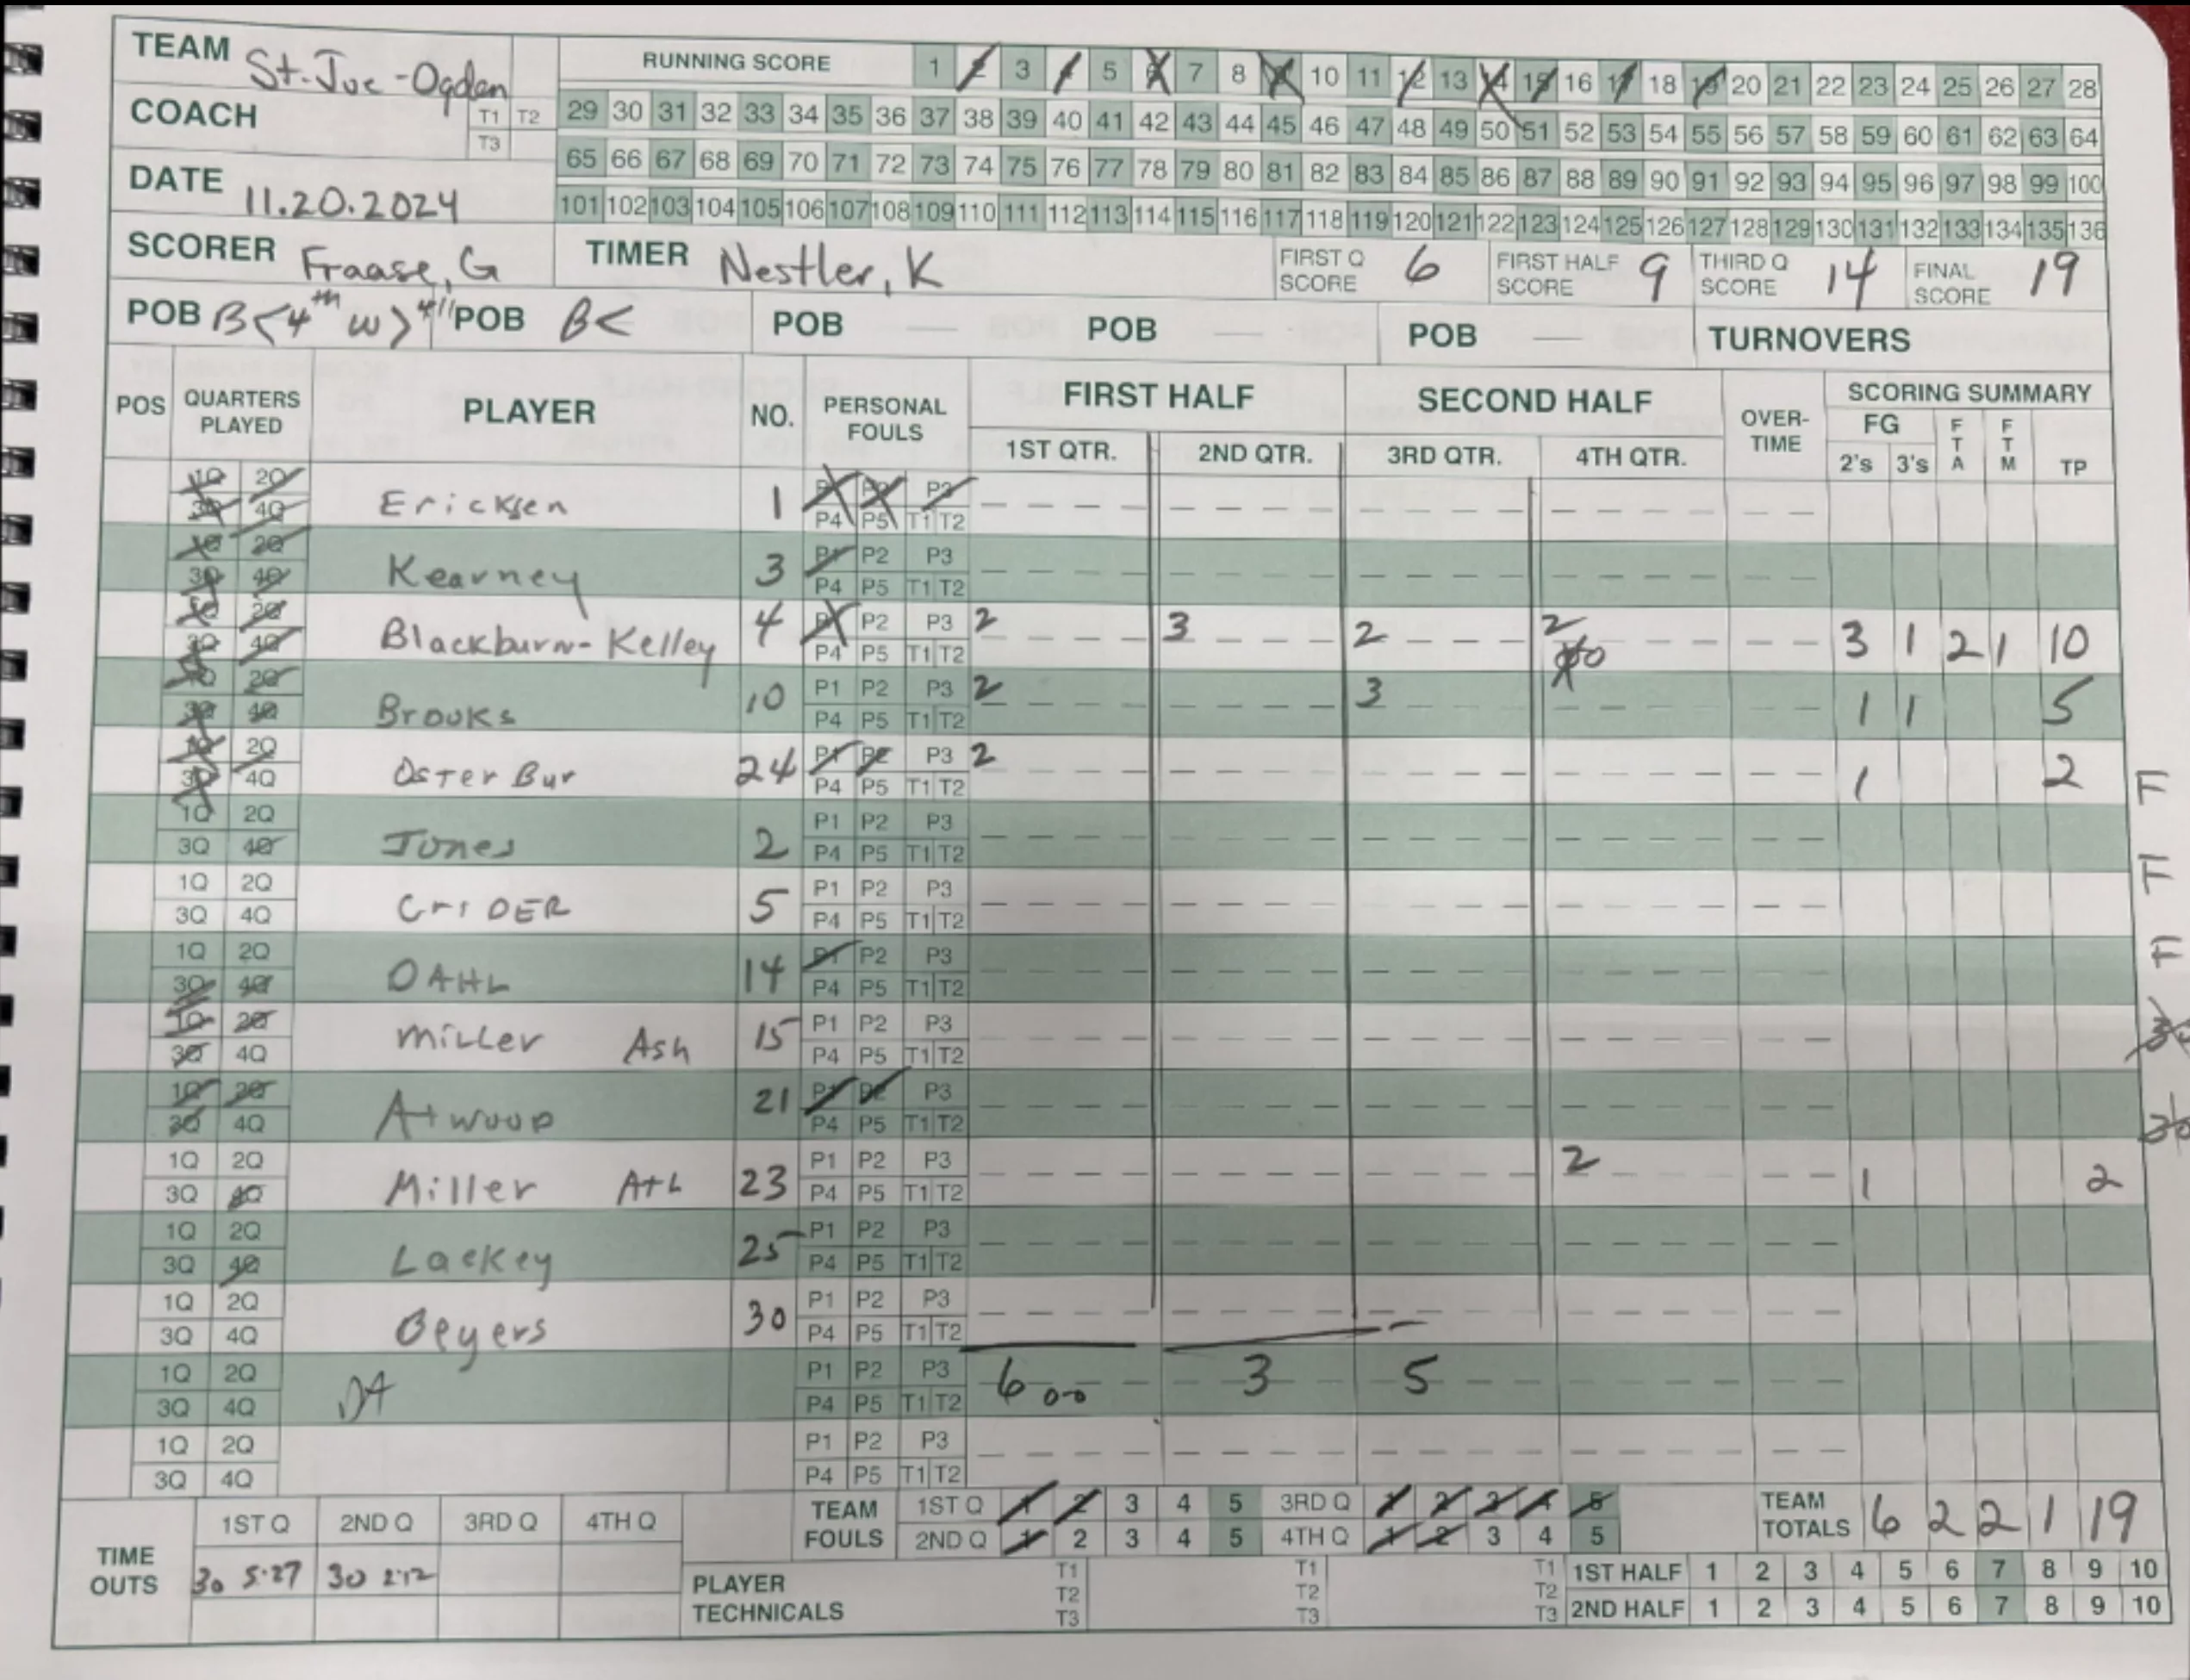 TEAM St. Joe - Ogden
RUNNING SCORE 1 2 3 4 5 6 7 8 9 10 11 12 13 14 15 16 17 18 19 20 21 22 23 24 25 26 27 28
COACH T1 T2 T3
29 30 31 32 33 34 35 36 37 38 39 40 41 42 43 44 45 46 47 48 49 50 51 52 53 54 55 56 57 58 59 60 61 62 63 64
65 66 67 68 69 70 71 72 73 74 75 76 77 78 79 80 81 82 83 84 85 86 87 88 89 90 91 92 93 94 95 96 97 98 99 100
DATE 11.20.2024
101 102 103 104 105 106 107 108 109 110 111 112 113 114 115 116 117 118 119 120 121 122 123 124 125 126 127 128 129 130 131 132 133 134 135 136
SCORER Fraase, G TIMER Nestler, K FIRST Q SCORE 6 FIRST HALF SCORE 9 THIRD Q SCORE 14 FINAL SCORE 19
POB B<4th W> POB B< POB POB POB TURNOVERS
POS QUARTERS PLAYED PLAYER NO. PERSONAL FOULS FIRST HALF SECOND HALF OVER-TIME SCORING SUMMARY
1ST QTR. 2ND QTR. 3RD QTR. 4TH QTR. FG 2's 3's FTA FTM TP
1Q 2Q Ericksen 1 P1 P2 P3
3Q 4Q P4 P5 T1 T2
1Q 2Q Kearney 3 P1 P2 P3
3Q 4Q P4 P5 T1 T2
1Q 2Q Blackburn-Kelley 4 P1 P2 P3 2 3 2 2 3 1 2 1 10
3Q 4Q P4 P5 T1 T2
1Q 2Q Brooks 10 P1 P2 P3 2 3 1 1 5
3Q 4Q P4 P5 T1 T2
1Q 2Q OsterBur 24 P1 P2 P3 2 1 2
3Q 4Q P4 P5 T1 T2 F
1Q 2Q Jones 2 P1 P2 P3
3Q 4Q P4 P5 T1 T2
1Q 2Q CriDER 5 P1 P2 P3
3Q 4Q P4 P5 T1 T2
1Q 2Q DAHL 14 P1 P2 P3 F
3Q 4Q P4 P5 T1 T2
1Q 2Q Miller Ash 15 P1 P2 P3
3Q 4Q P4 P5 T1 T2
1Q 2Q Atwood 21 P1 P2 P3
3Q 4Q P4 P5 T1 T2
1Q 2Q Miller 23 P1 P2 P3 2 1 2
3Q 4Q P4 P5 T1 T2
1Q 2Q Lackey 25 P1 P2 P3
3Q 4Q P4 P5 T1 T2
1Q 2Q 30 P1 P2 P3
3Q 4Q P4 P5 T1 T2
1Q 2Q P1 P2 P3 6 3 5
3Q 4Q P4 P5 T1 T2
1Q 2Q P1 P2 P3
3Q 4Q P4 P5 T1 T2
TIME OUTS 1ST Q 2ND Q 3RD Q 4TH Q
30 5:27 30 2:12
TEAM FOULS 1ST Q 1 2 3 4 5 3RD Q 1 2 3 4 5
2ND Q 1 2 3 4 5 4TH Q 1 2 3 4 5
TEAM TOTALS 6 2 2 1 19
PLAYER TECHNICALS T1 T2 T3 T1 T2 T3 T1 T2 T3
1ST HALF 1 2 3 4 5 6 7 8 9 10
2ND HALF 1 2 3 4 5 6 7 8 9 10